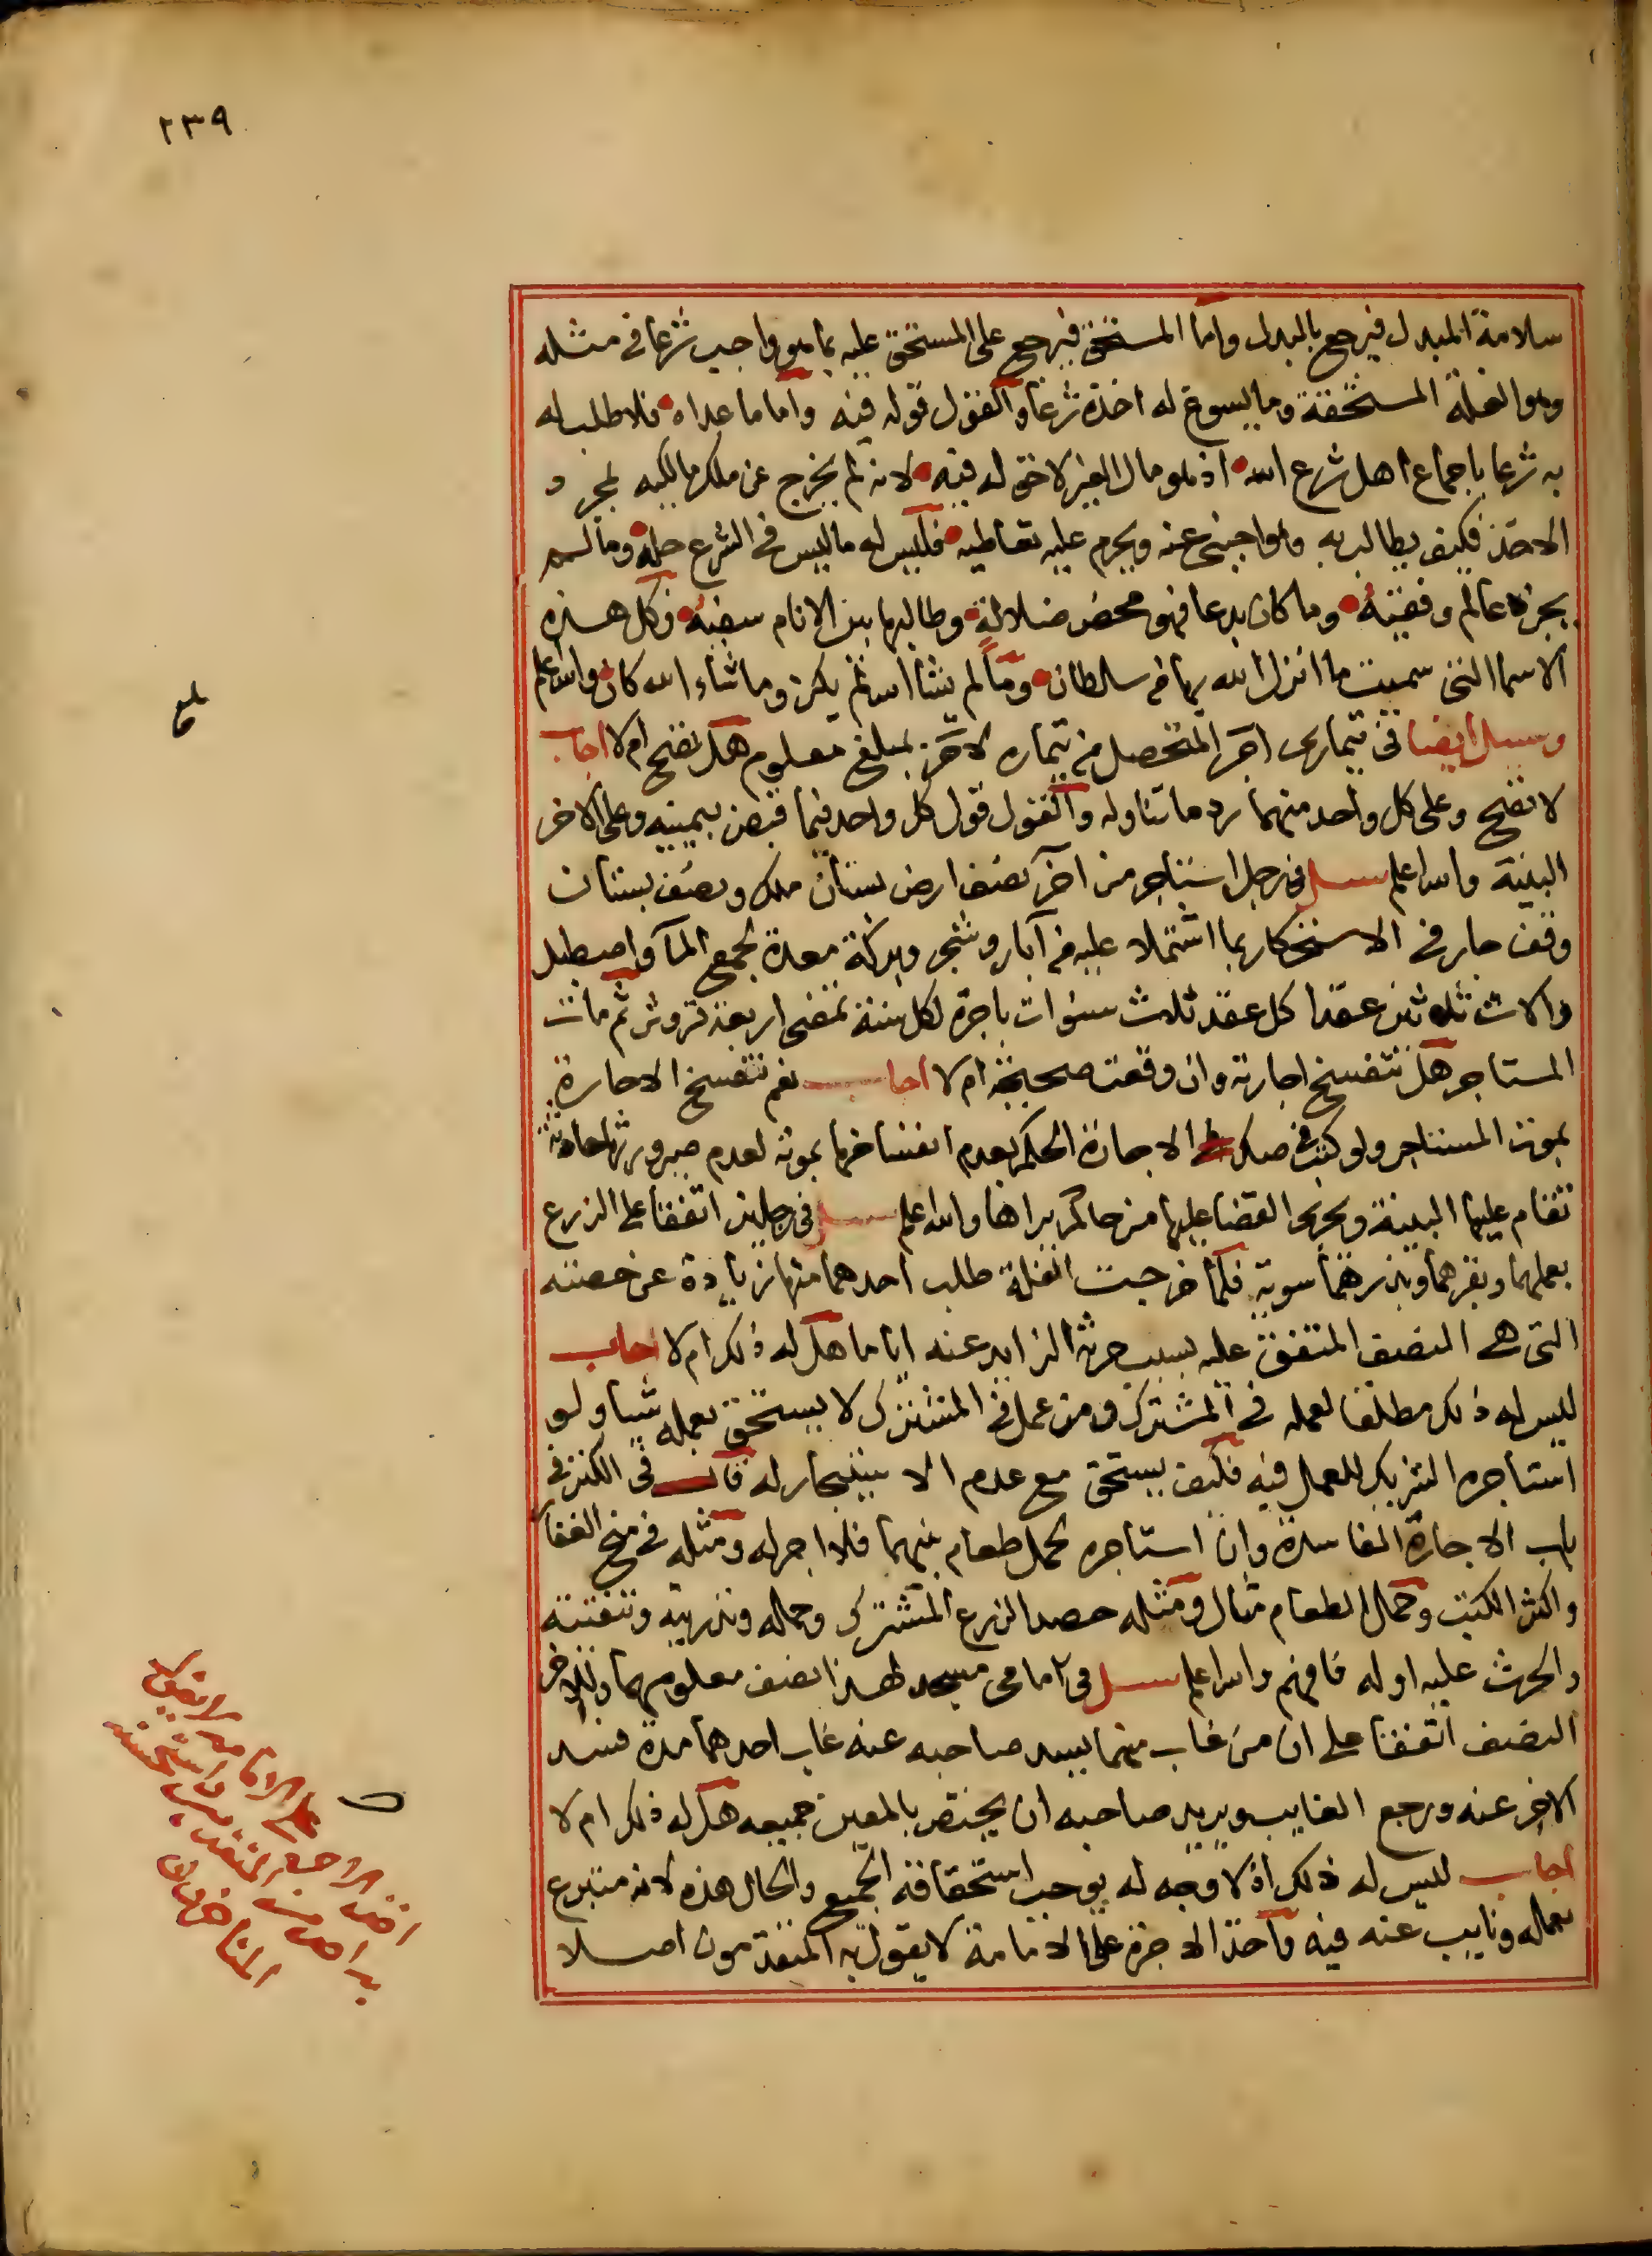 ٢٣٩
سلامة المبدل فيرجع بالبدل واما المستحق فيرجع على المستحق عليه بما هو واجب شرعا في مثله
وهو الغلة المستحقة وما يسوغ له اخذه شرعا والقول قوله فيه واما ما عداه فلا طلب له
به شرعا باجماع اهل شرع الله اذ هو مال الغير لا حق له فيه لانه لم يخرج عن ملك مالكه لمجرد
الاخذ فكيف يطالب به وهو اجنبي عنه ويحرم عليه تعاطيه فليس له ما ليس في الشرع حله وما لم
يجزه عالم وفقيه وما كان بدعا فهو محض ضلالة وطالبها بين الانام سفيه وكل هذه
الاسما التي سميت ما انزل الله بها من سلطان وما لم يشا الله لم يكن وما شاء الله كان والله اعلم
وسيل ايضا في تيماري اجر المتحصل من تيماره لاخر بمبلغ معلوم هل يصح ام لا اجاب
لا تصح وعلى كل واحد منهما رد ما تناوله والقول قول كل واحد فيما قبض بيمينه وعلى الاخر
البينة والله اعلم سيل في رجل استاجر من اخر نصف ارض بستان ملك ونصف بستان
وقف جار في الاستحكار بما اشتملا عليه من آبار وشجر وبركة معدة لجمع المآ واصطبل
والات ثلاثين عقدا كل عقد ثلاث سنوات باجرة لكل سنة تمضى اربعة قروش ثم مات
المستاجر هل تنفسخ اجارته وان وقعت صحيحة ام لا اجاب نعم تنفسخ الاجارة
بموت المستاجر ولو كتب في صك الاجارة الحكم بعدم انفساخها بموته لعدم صيرورتها حادثة
تقام عليها البينة ويجري القضا عليها من حاكم يراها والله اعلم سيل في رجلين اتفقا على الزرع
بعملهما وبقرهما وبذرهما سوية فلما خرجت الغلة طلب احدهما منها زيادة عن حصته
التي هي النصف المتفق عليه بسبب حرثه الزايد عنه اياما هل له ذلك ام لا اجاب
ليس له ذلك مطلقا لعمله في المشترك ومن عمل في المشترك لا يستحق بعمله شيا ولو
استاجره الشريك للعمل فيه فكيف يستحق مع عدم الاستيجار له قال في الكنز في
باب الاجارة الفاسدة وان استاجره لحمل طعام بينهما فلا اجر له ومثله في منح الغفار
واكثر الكتب وحمل الطعام مثال ومثله حصد الزرع المشترك وحمله وتذريته وتنقيته
والحرث عليه اوله فافهم والله اعلم سيل في امامي مسجد لهذا نصف معلومهما وللاخر
النصف اتفقا على ان من غاب منهما يسد صاحبه عنه غاب احدهما مدة فسد
الاخر عنه ورجع الغايب ويريد صاحبه ان يختص بالمعين جميعه هل له ذلك ام لا
اجاب ليس له ذلك اذ لا وجه له يوجب استحقاقه الجميع والحال هذه لانه متبرع
بعمله ونايب عنه فيه واخذ الاجرة على الامامة لا يقول به المتقدمون اصلا
بلغ
اخذ الاجرة على الامامة لا يقول
به احد من المتقدمين واستحسنه
المتاخرون